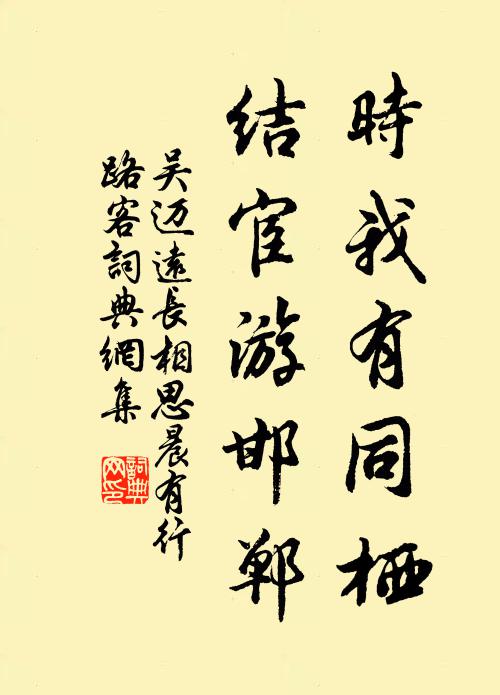 時我有同栖
结宦游邯郸
吴迈遠長相思晨有行
路客詞典網集
詞典